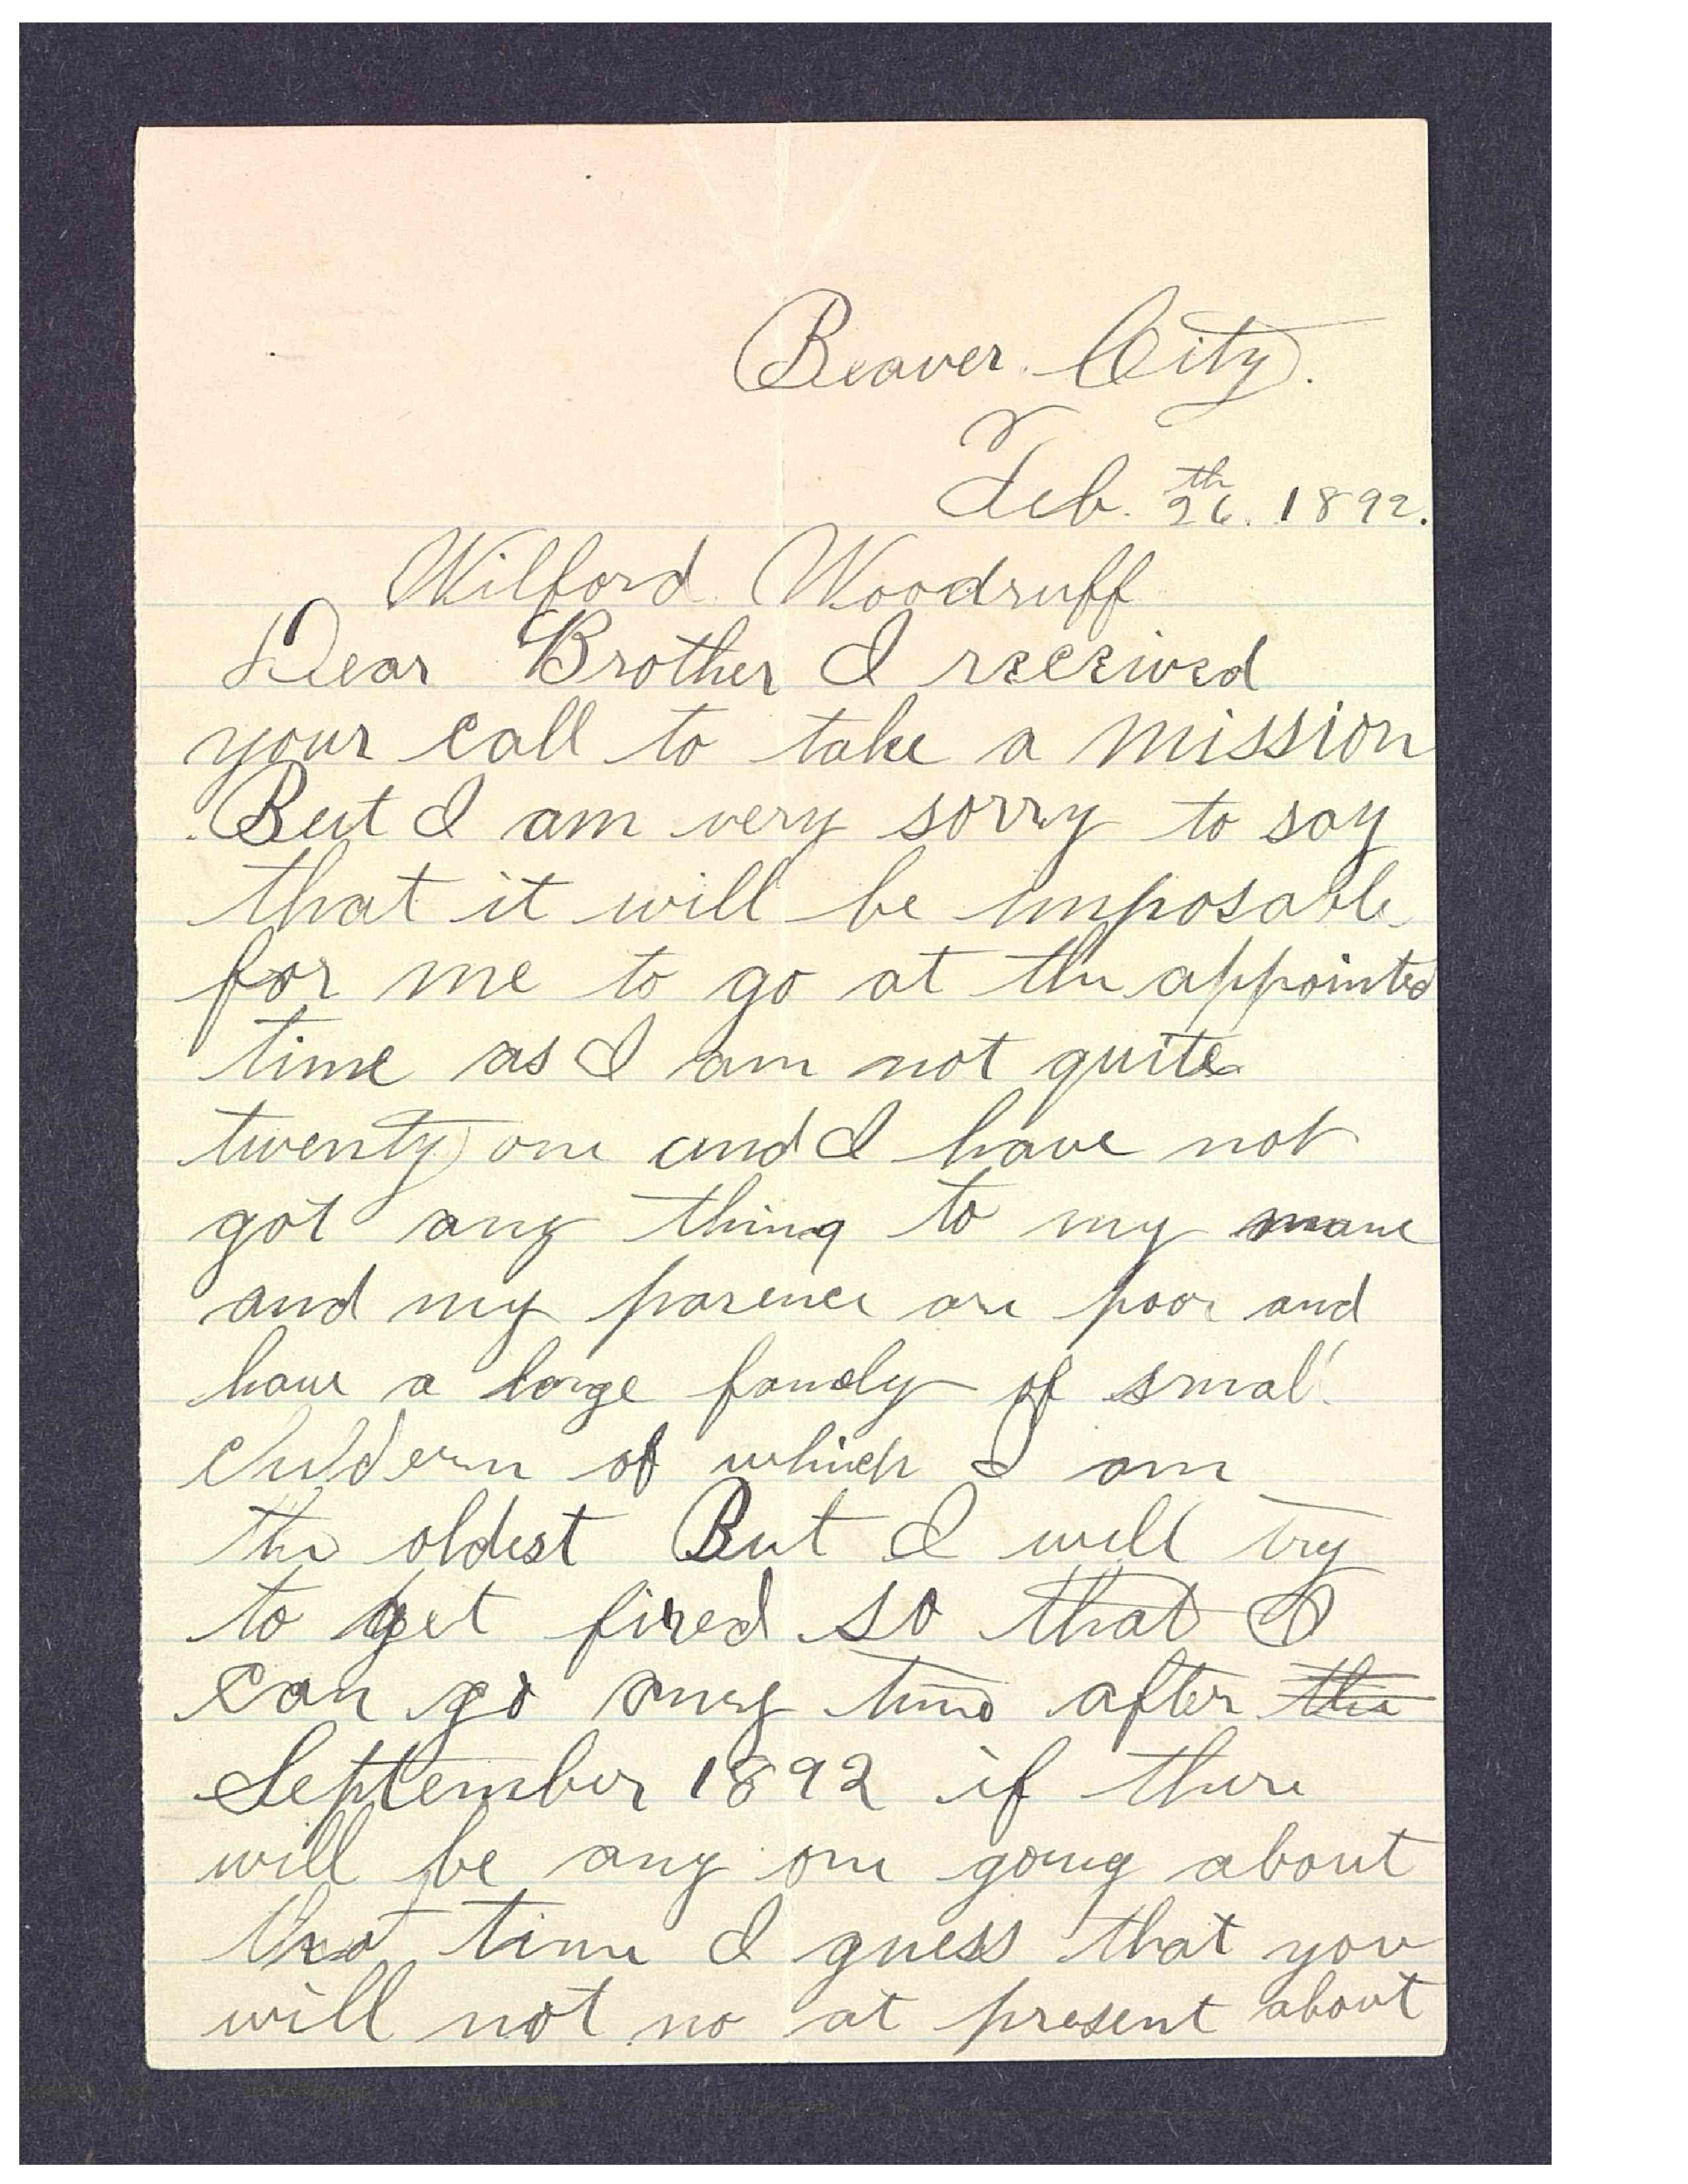 Beaver City.
Feb. 26th. 1892.
Wilford Woodruff
Dear Brother I received
your call to take a mission
But I am very sorry to say
that it will be imposable
for me to go at the appointed
time as I am not quite
twenty one and I have not
got any thing to my
and my parence are poor and
have a large famely of small
childern of which I am
the oldest But I will try
to get fixed so that I
can go any time after the
September 1892 if there
will be any one going about
that time I guess that you
will not no at present about